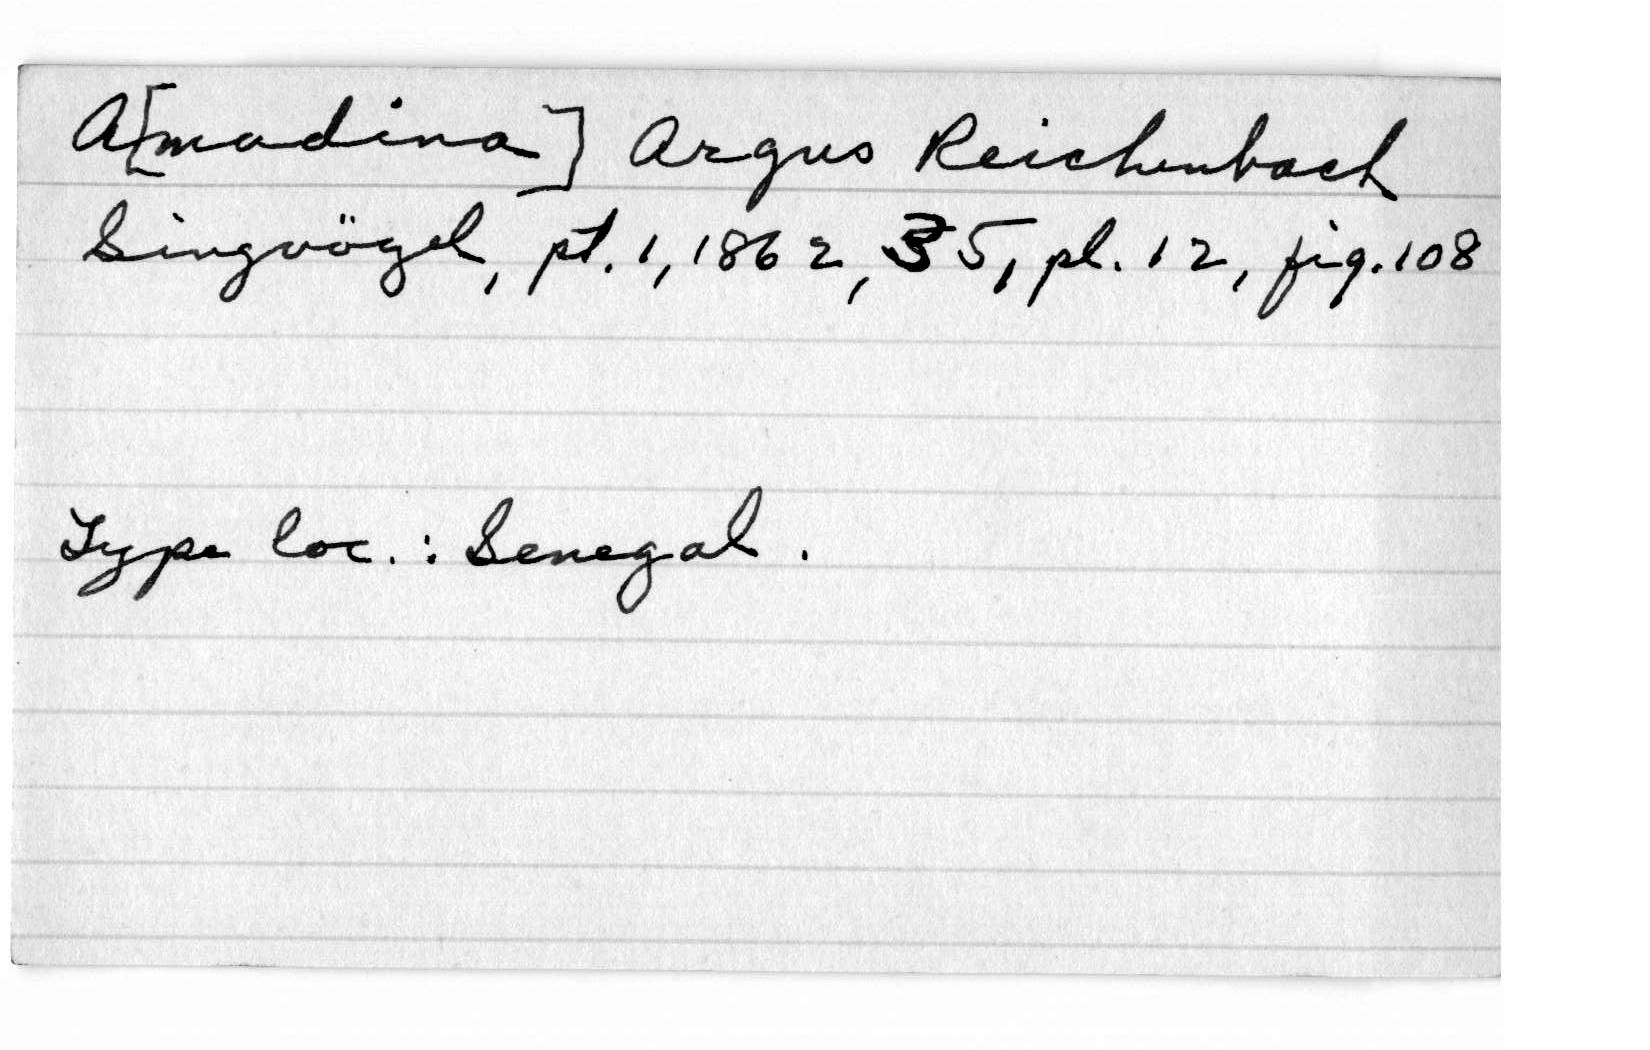 A[madina] Argus Reichenbach
Singvögel, pt. 1, 1862, 35, pl. 12, fig. 108
Type loc. : Senegal .